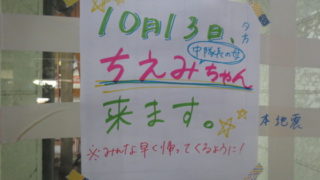 10月13日、夕方
中隊長の母
ちえみちゃん
来ます。
※みんな早く帰ってくるように!
本地震